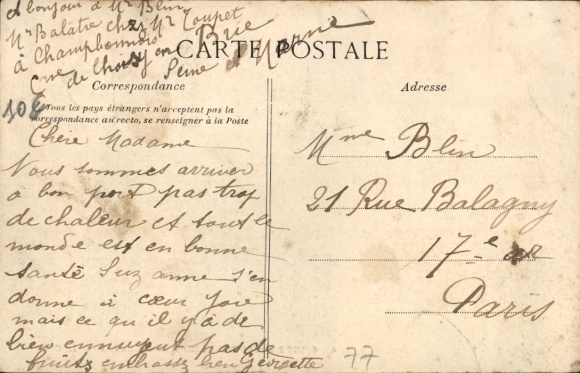 et bonjour à Mr Blin
Mr Balatre chez Mr Coupet
à Champbonnois
Cne de Choisy en Brie
Seine et Marne
CARTE POSTALE
Correspondance
Tous les pays étrangers n'acceptent pas la
correspondance au recto, se renseigner à la Poste
10€
Chère Madame
Nous sommes arriver
à bon port pas trop
de chaleur et tout le
monde est en bonne
santé Suzanne s'en
donne à cœur joie
mais ce qu'il y à de
bien ennuyent pas de
fruits embrassez bien Georgette
Adresse
Mme Blin
21 Rue Balagny
17e ar
Paris
77